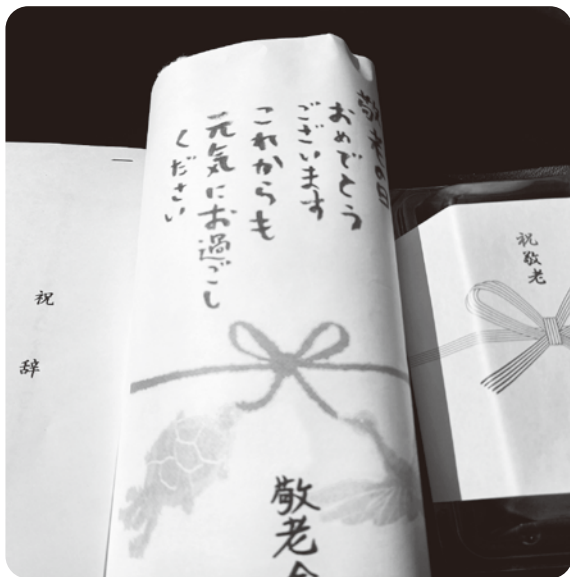 敬老の日
おめでとう
ございます
これからも
元気にお過ごし
ください
敬老会
祝敬老
祝辞